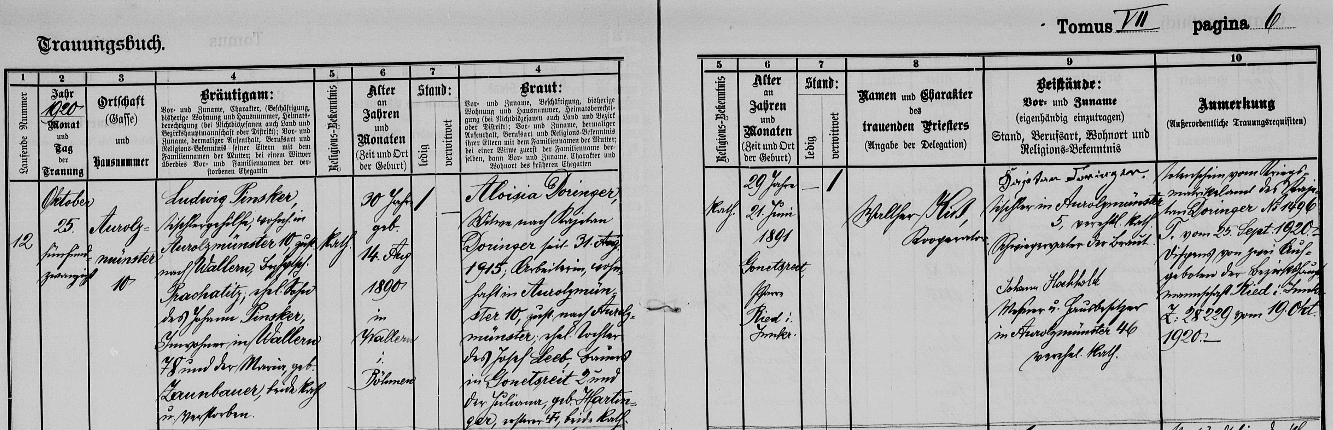 Trauungsbuch.
Tomus VII pagina 6
1
2
3
4
5
6
7
4
5
6
7
8
9
10
Laufende Nummer
Jahr
1920
Monat
und
Tag
der
Trauung
Ortschaft
(Gasse)
und
Hausnummer
Bräutigam:
Vor- und Zuname, Charakter, (Beschäftigung,
bisherige Wohnung und Hausnummer, Heimats-
berechtigung (bei Nichtbeigesen auch Land und
Bezirkshauptmannschaft oder Distrikt); Vor- und
Zuname, dermaliger Aufenthalt, Berufsart und
Religions-Bekenntnis seiner Eltern mit dem
Familiennamen der Mutter; bei einem Witwer
überdies Vor- und Familiennamen der ver-
storbenen Ehegattin
Religions-Bekenntnis
Alter
an
Jahren
und
Monaten
(Zeit und Ort
der Geburt)
Stand:
ledig
verwitwet
Braut:
Vor- und Zuname, Beschäftigung, bisherige
Wohnung und Hausnummer, Heimatsberechti-
gung
oder Distrikt); Vor- und Zuname, dermaliger
Aufenthalt, Berufsart und Religions-Bekenntnis
ihrer Eltern mit dem Familiennamen der Mutter;
bei einer Witwe
Wohnort des früheren Ehegatten
Religions-Bekenntnis
Alter
an
Jahren
und
Monaten
(Zeit und Ort
der Geburt)
Stand:
ledig
verwitwet
Namen und Charakter
des
trauenden Priesters
(Angabe der Delegation)
Beistände:
Vor- und Zuname
(eigenhändig einzutragen)
Stand, Berufsart, Wohnort und
Religions-Bekenntnis
Anmerkung
(Außerordentliche Trauungsrequisiten)
12
Oktober
25.
fünfund
zwanzig
Aurolz-
münster
10
Ludwig Pinsker,
Tischlergehilfe, wohnh. in
Aurolzmünster 10, zust.
nach Wallern, Bezhptsch.
Prachatitz, ehel. Sohn
des Johann Pinsker,
Inwohner in Wallern
78 und der Maria, geb.
Zaunbauer, beide kath.
u. verstorben.
kath.
30 Jahre
geb.
14. Aug
1890
in
Wallern
i.
Böhmen
1
—
Aloisia Doringer,
Witwe nach Kajetan
Doringer seit 31. Aug.
1915, Arbeiterin, wohn-
haft in Aurolzmün-
ster 10, zust. nach Aurolz-
münster, ehel. Tochter
des Josef Leeb, Bauers
in Gonetsreit 2 und
der Juliana, geb. Hartin-
ger, ersterer †, beide kath.
kath.
29 Jahre
21. Juni
1891
Gonetsreit
Pfarre
Ried i.
Innkr.
—
1
Walther
Kooperator
Kajetan Doringer
Tischler in Aurolzmünster
5, verehl. kath.
Schwiegervater der Braut.
Johann
Mesner u. Hausbesitzer
in Aurolzmünster 46
verehel. kath.
Totenschein vom Kriegs-
matrikelamt des Kaje-
tan Doringer No 1496
T. vom 25. Sept. 1920.
Dispens von zwei Auf-
geboten der Bezirkshaupt-
mannschaft Ried i. Innkr.
Z. 28229 vom 19. Okt.
1920.